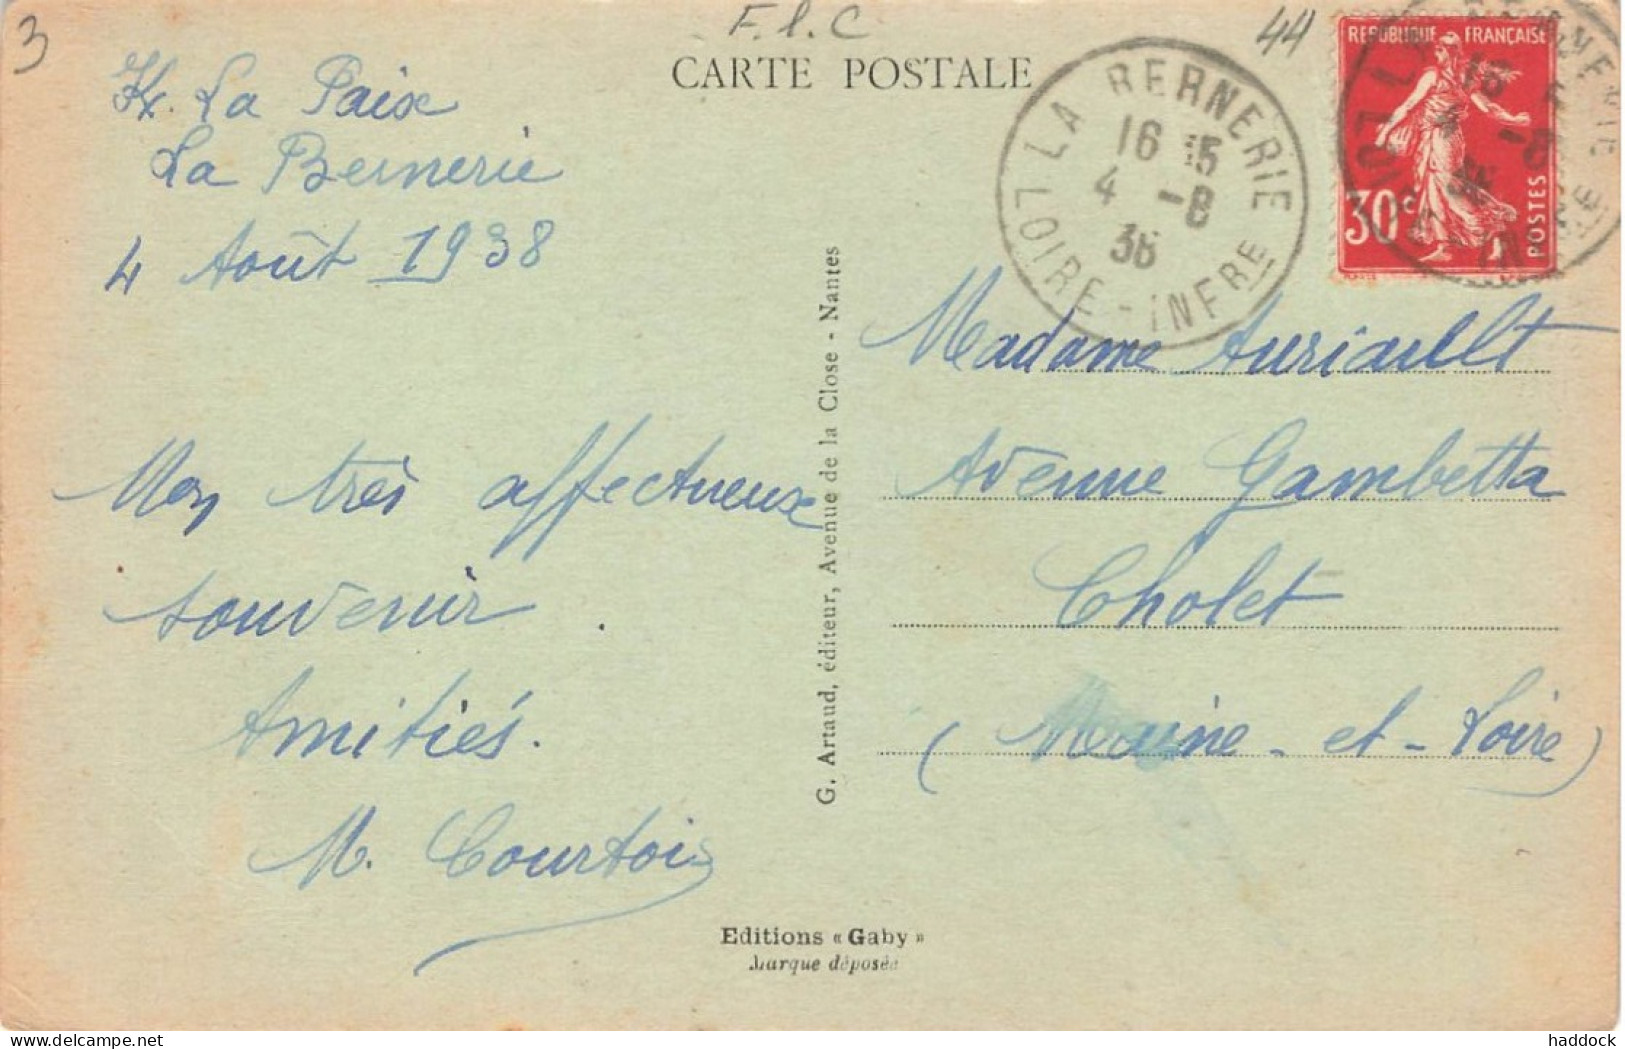 3
F.l.C
44
CARTE POSTALE
La Paix
La Bernerie
4 Août 1938
LA BERNERIE
16 15
4 -8
38
LOIRE-INFRE
REPUBLIQUE FRANÇAISE
30c
POSTES
Mon très affectueux
souvenir.
Amitiés.
M. Courtois
G. Artaud, éditeur, Avenue de la Close - Nantes
Madame Auriault
Avenue Gambetta
Cholet
(Maine-et-Loire)
Editions « Gaby »
Marque déposée
haddock